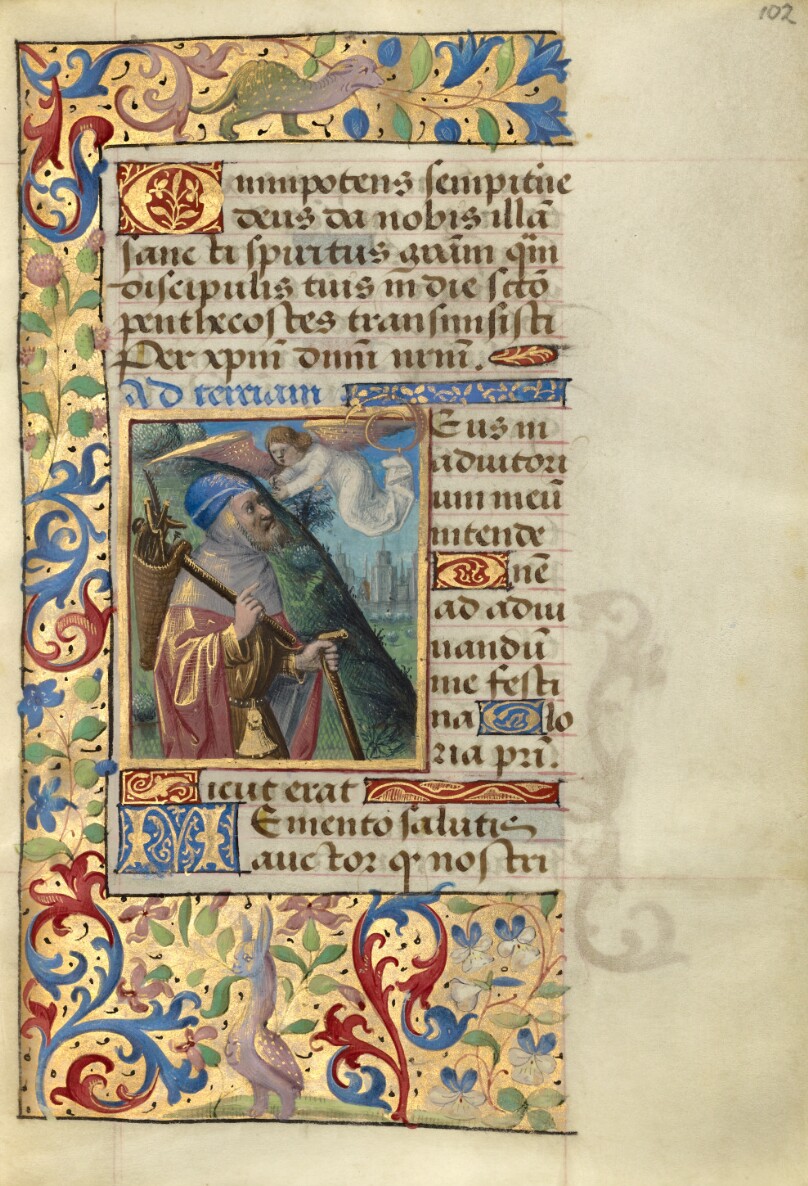 102
Omnipotens sempit̄ne
deus da nobis illā
sancti spiritus grām qm̄
discipulis tuis in die sctō
penthecostes transmisisti
Per xpm̄ dnm̄ nrm̄.
Ad terciam
Deus in
adiutori
um meū
intende
Dnē
ad adiu
uandū
me festi
na Glo
ria pri.
Sicut erat
Memento salutis
auctor qꝫ nostri